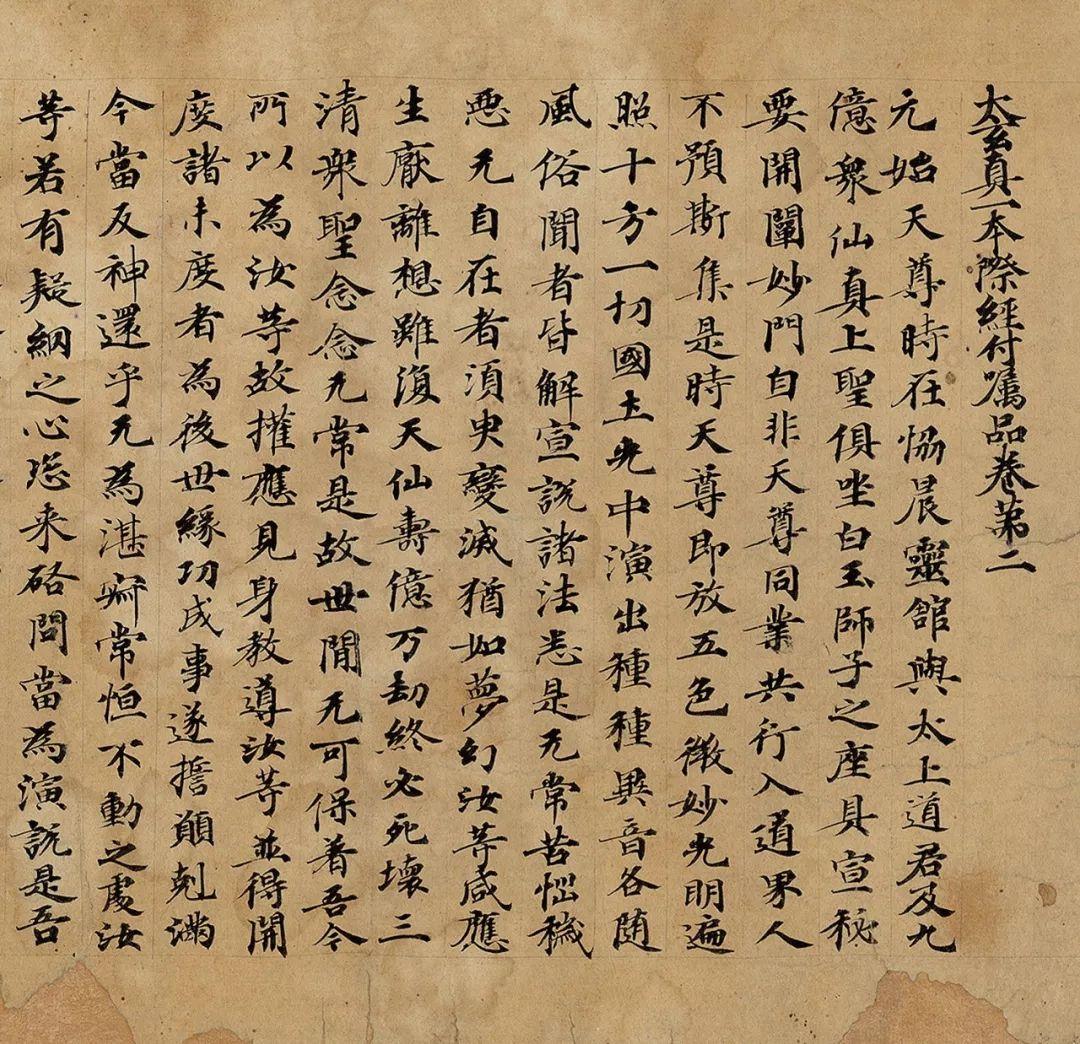 太玄真一本際經付囑品卷第二
元始天尊時在協晨靈館與太上道君及九
億衆仙真上聖俱坐白玉師子之座具宣秘
要開闡妙門自非天尊同業共行入道界人
不預斯集是時天尊即放五色徴妙光明遍
照十方一切國土光中演出種種異音各随
風俗聞者皆解宣説諸法悉是无常苦惱穢
惡无自在者湏臾變滅猶如夢幻汝等咸應
生厭離想雖復天仙壽億万劫終必死壞三
清衆聖念念无常是故世閒无可保著吾今
所以為汝等故權應見身教導汝等並得開
度諸未度者為後世緣功成事遂誓願剋滿
今當反神還乎无為湛寂常恒不動之處汝
等若有疑網之心恣来啓問當為演説是吾